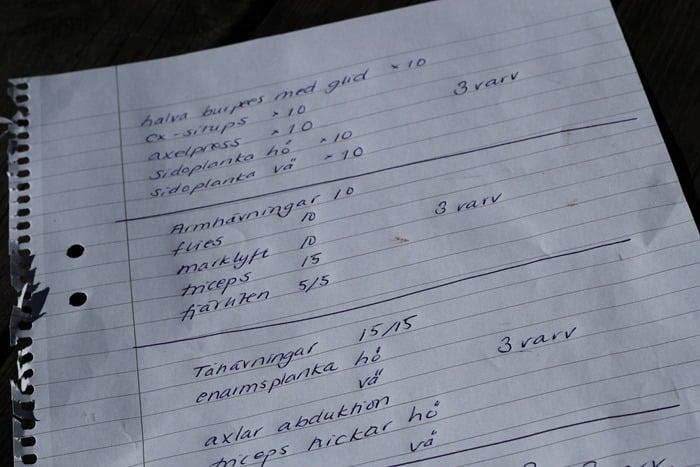 halva burpees med glid × 10
cx-situps × 10
axelpress × 10
3 varv
sidoplanka hö × 10
sidoplanka vä × 10
Armhävningar 10
flies 10
3 varv
marklyft 10
triceps 15
fjärilen 5/5
Tåhävningar 15/15
enarmsplanka hö
3 varv
vä
axlar abduktion
triceps kickar hö
vä
varv